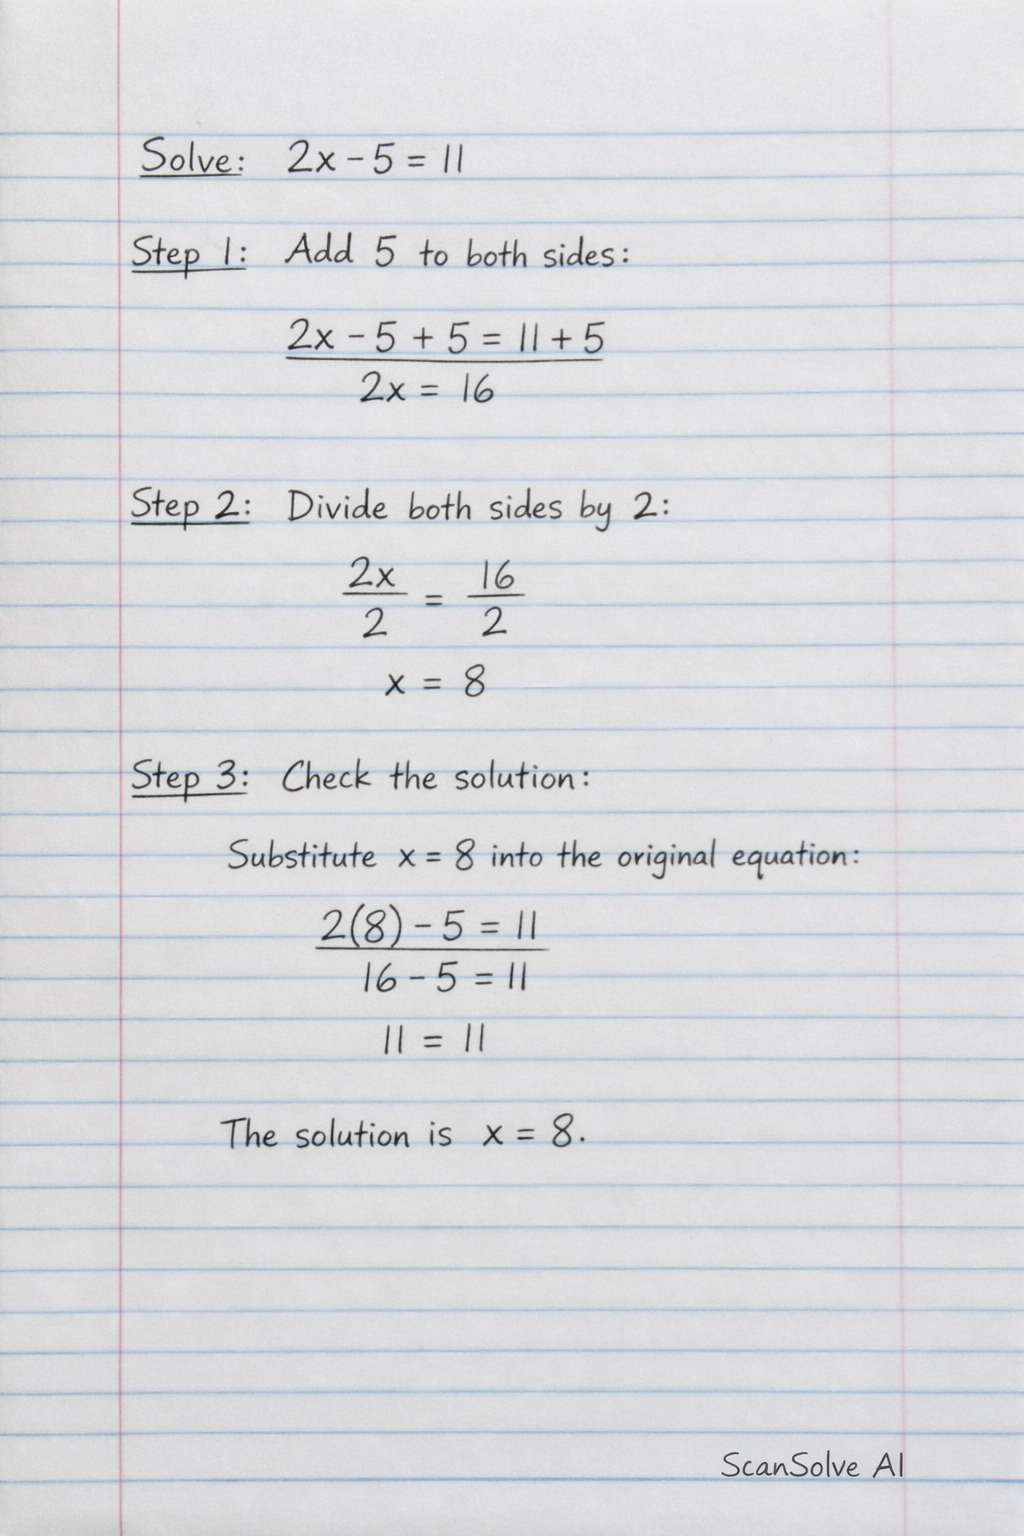 Solve: 2x - 5 = 11
Step 1: Add 5 to both sides:
2x - 5 + 5 = 11 + 5
2x = 16
Step 2: Divide both sides by 2:
2x/2 = 16/2
x = 8
Step 3: Check the solution:
Substitute x = 8 into the original equation:
2(8) - 5 = 11
16 - 5 = 11
11 = 11
The solution is x = 8.
ScanSolve AI